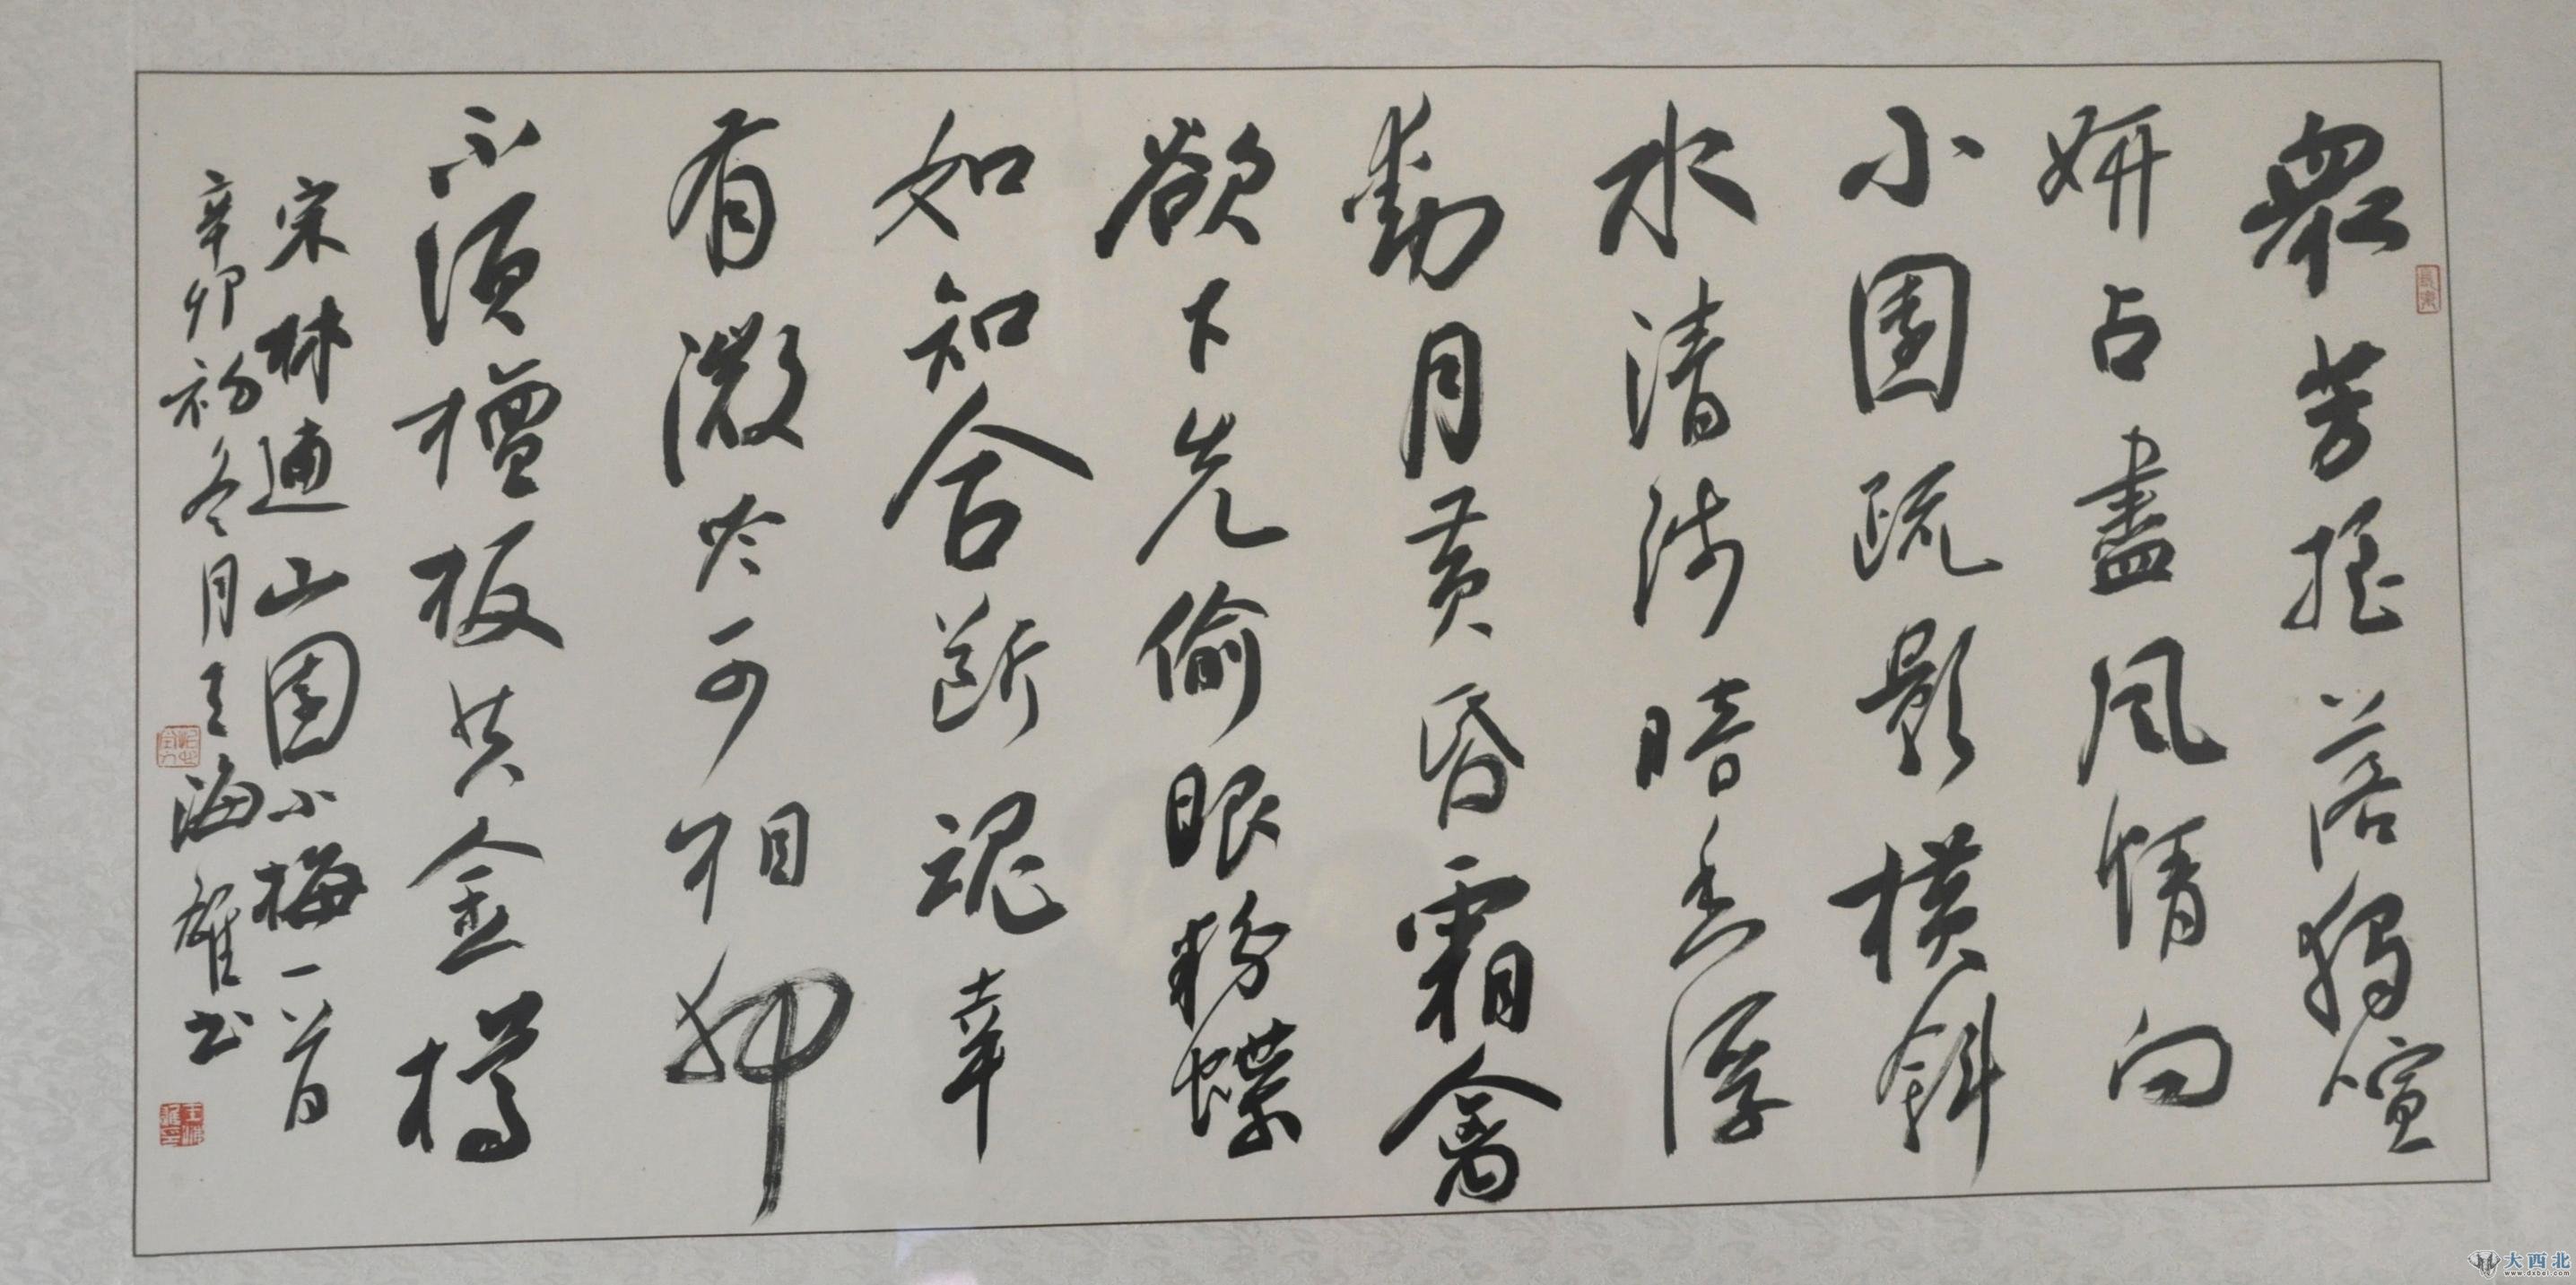 衆芳摇落獨喧
妍占盡風情向
小園疏影橫斜
水清淺暗香浮
動月黃昏霜禽
欲下先偷眼粉蝶
如知合斷魂幸
有微吟可相狎
不須檀板共金樽
宋林逋山園小梅一首
辛卯初冬月王海雄书
大西北
www.dxbei.com